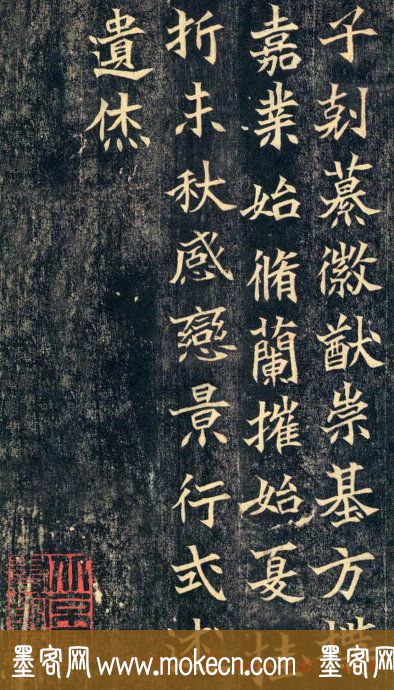 子剋纂徽猷崇基方構
嘉業始脩蘭摧始夏桂
折未秋感戀景行式述
遺烋
墨客网 www.mokecn.com 墨客网